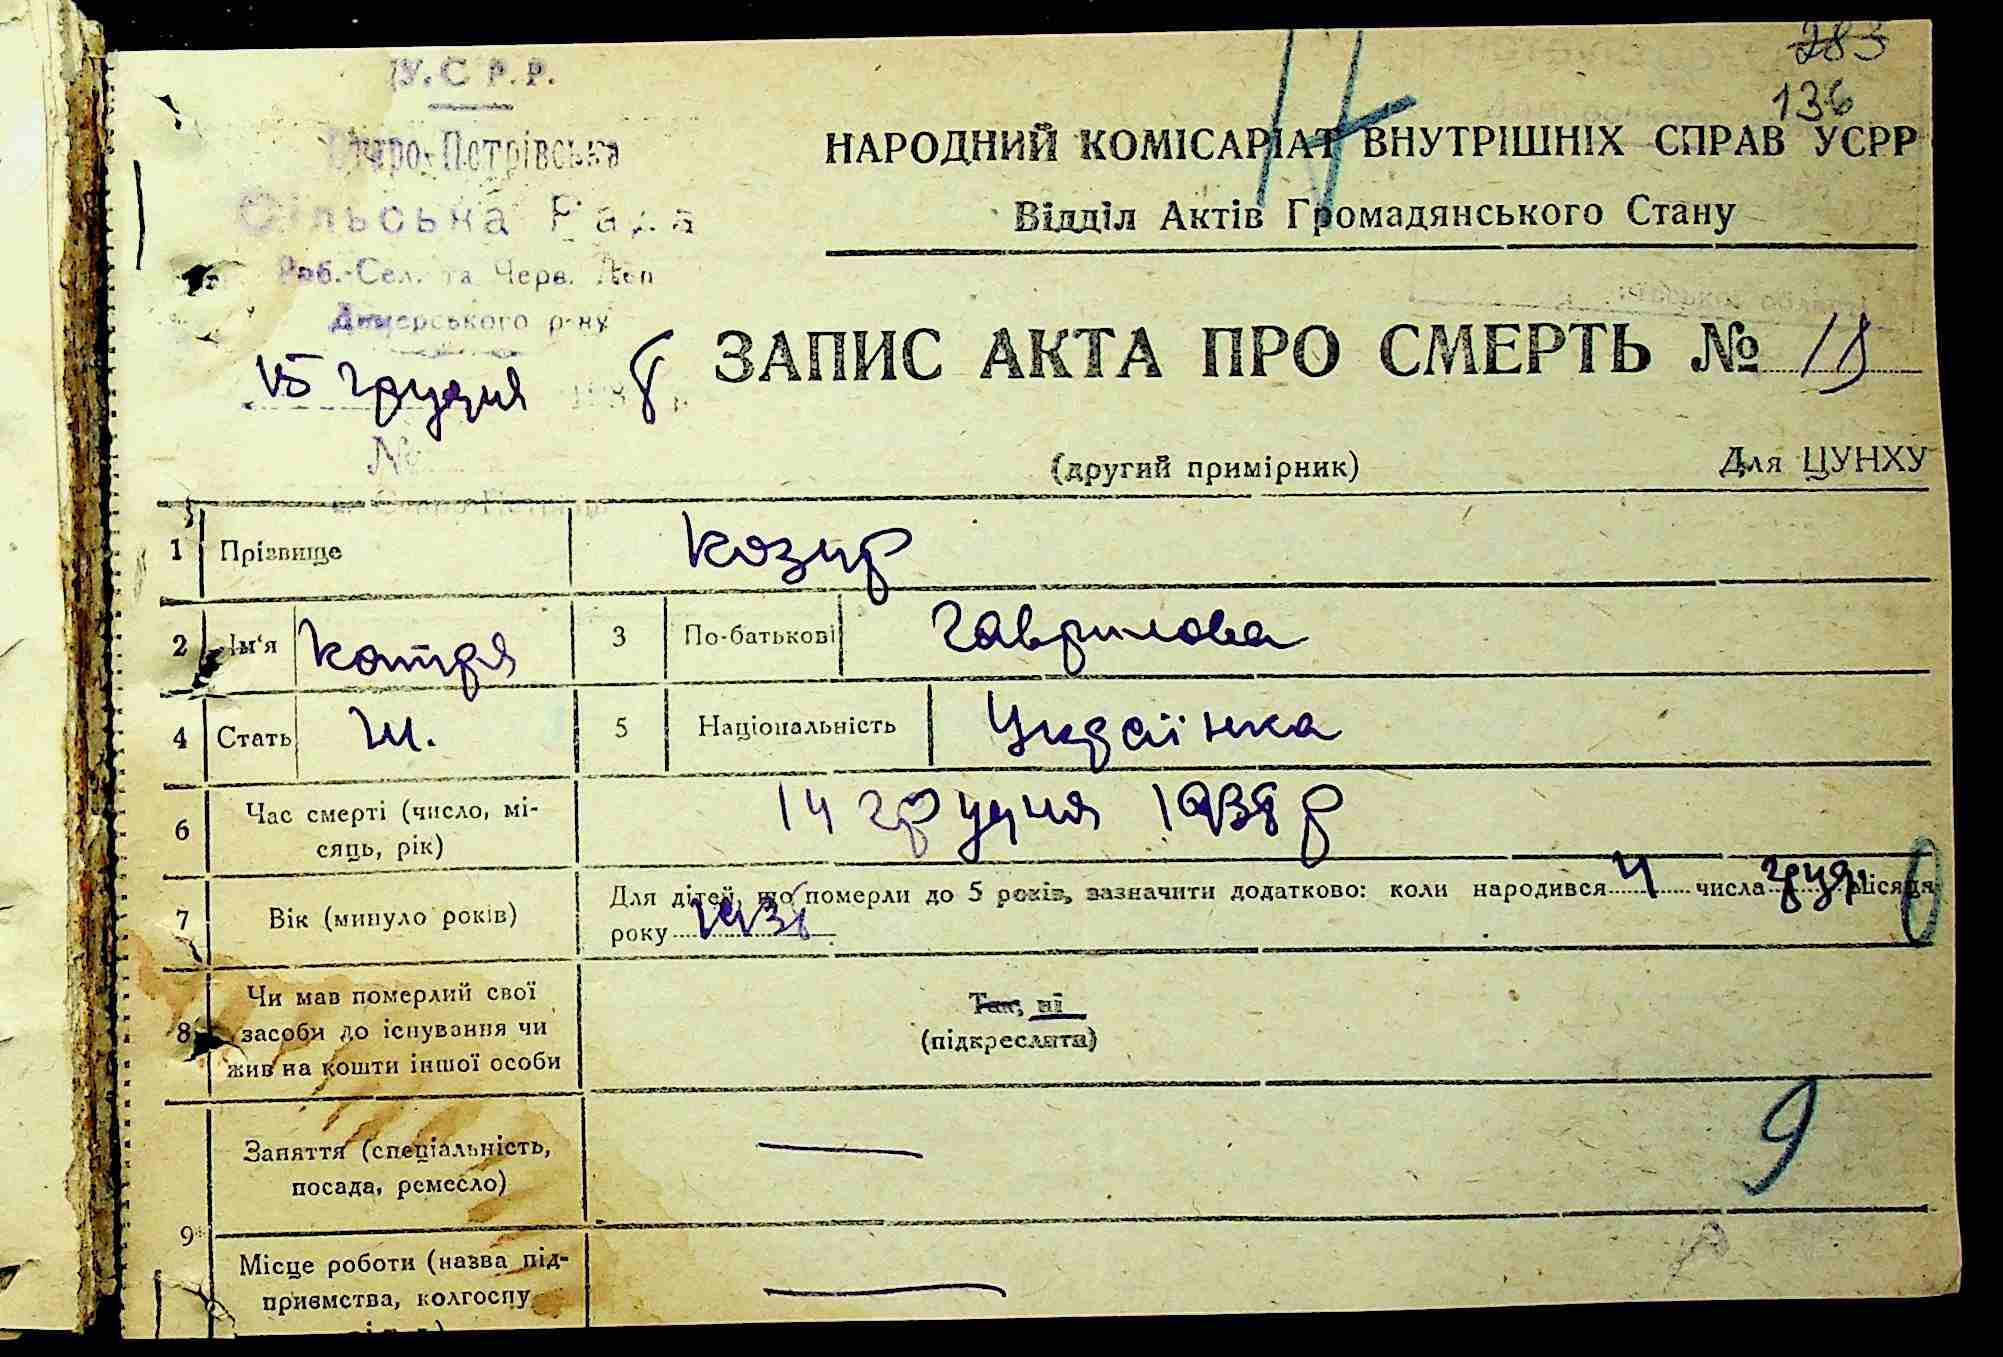 283
136
У.С Р.Р.
Старо-Петрівська
Сільська Рада
Роб.-Сел. та Черв. Деп
Димерського р-ну
15 грудня 8
№
НАРОДНИЙ КОМІСАРІАТ ВНУТРІШНІХ СПРАВ УСРР
Відділ Актів Громадянського Стану
ЗАПИС АКТА ПРО СМЕРТЬ №
(другий примірник) Для ЦУНХУ
1 Прізвище Козир
2 Ім'я Катря 3 По-батькові Гаврилова
4 Стать Ж. 5 Національність Українка
6 Час смерті (число, мі-
сяць, рік) 14 грудня 1938 р
7 Вік (минуло років) Для дітей, що померли до 5 років, зазначити додатково: коли народився 4 числа груд. місяця
року 1938
0
8 Чи мав померлий свої
засоби до існування чи
жив на кошти іншої особи
Так, ні
(підкреслити)
9 Заняття (спеціальність,
посада, ремесло)
9
Місце роботи (назва під-
приємства, колгоспу